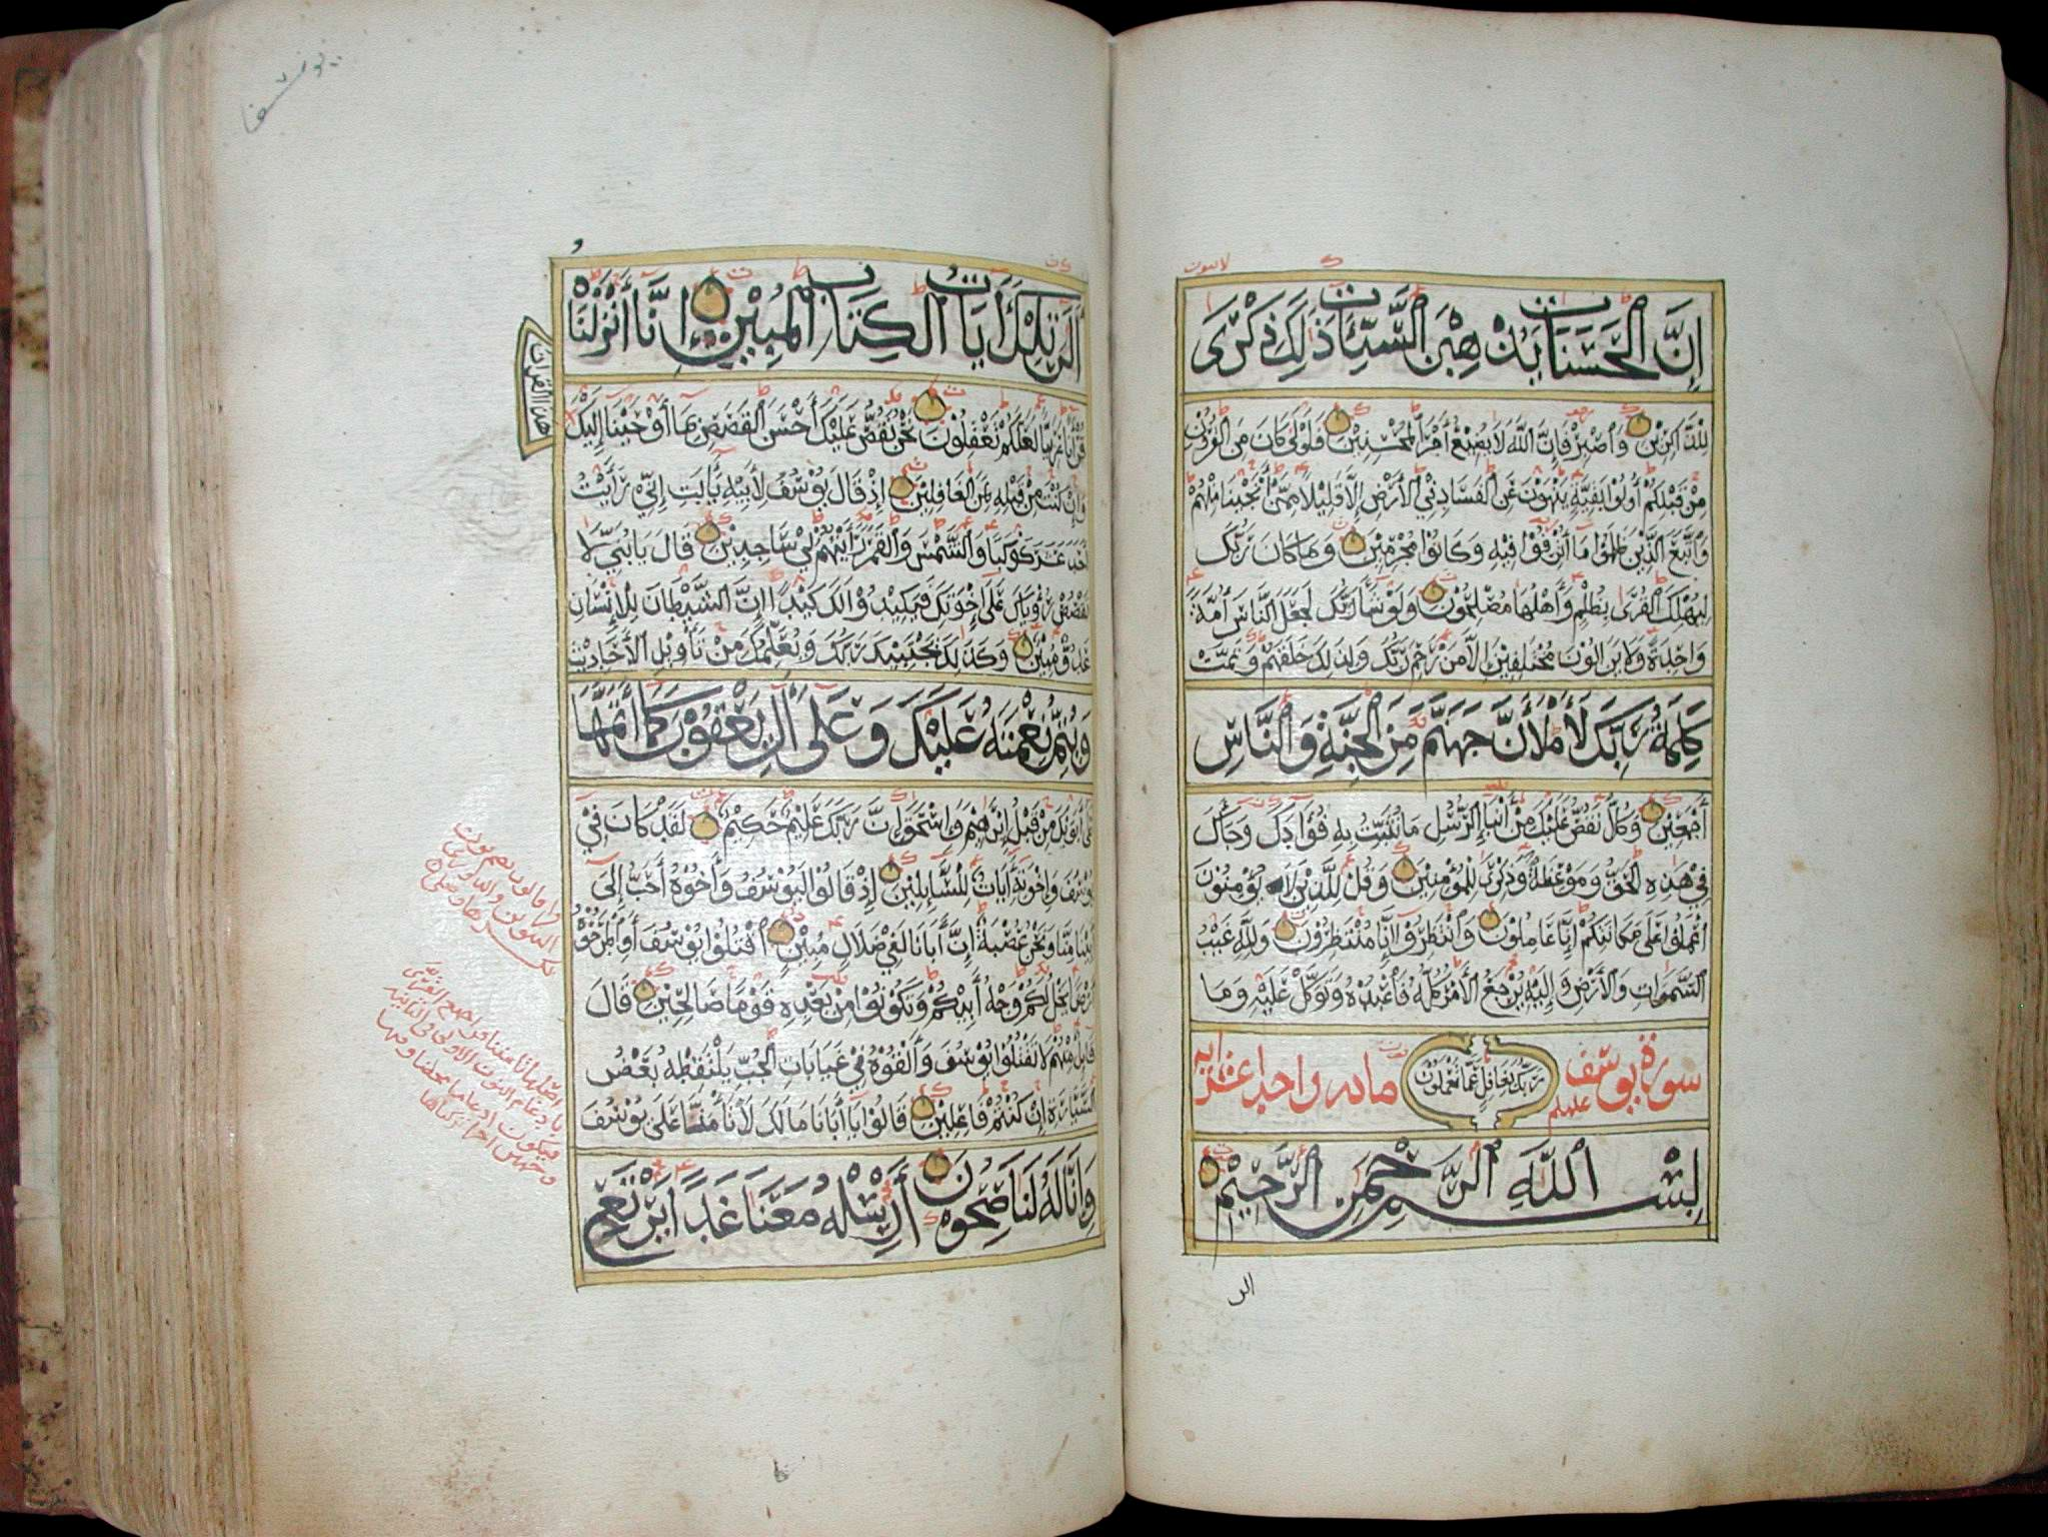 إِنَّ الْحَسَنَاتِ يُذْهِبْنَ السَّيِّئَاتِ ذَلِكَ ذِكْرَى
لِلذَّاكِرِينَ وَاصْبِرْ فَإِنَّ اللَّهَ لَا يُضِيعُ أَجْرَ الْمُحْسِنِينَ فَلَوْلَا كَانَ مِنَ الْقُرُونِ
مِنْ قَبْلِكُمْ أُولُوا بَقِيَّةٍ يَنْهَوْنَ عَنِ الْفَسَادِ فِي الْأَرْضِ إِلَّا قَلِيلًا مِمَّنْ أَنْجَيْنَا مِنْهُمْ
وَاتَّبَعَ الَّذِينَ ظَلَمُوا مَا أُتْرِفُوا فِيهِ وَكَانُوا مُجْرِمِينَ وَمَا كَانَ رَبُّكَ
لِيُهْلِكَ الْقُرَى بِظُلْمٍ وَأَهْلُهَا مُصْلِحُونَ وَلَوْ شَاءَ رَبُّكَ لَجَعَلَ النَّاسَ أُمَّةً
وَاحِدَةً وَلَا يَزَالُونَ مُخْتَلِفِينَ إِلَّا مَنْ رَحِمَ رَبُّكَ وَلِذَلِكَ خَلَقَهُمْ وَتَمَّتْ
كَلِمَةُ رَبِّكَ لَأَمْلَأَنَّ جَهَنَّمَ مِنَ الْجِنَّةِ وَالنَّاسِ
أَجْمَعِينَ وَكُلًّا نَقُصُّ عَلَيْكَ مِنْ أَنْبَاءِ الرُّسُلِ مَا نُثَبِّتُ بِهِ فُؤَادَكَ وَجَاءَكَ
فِي هَذِهِ الْحَقُّ وَمَوْعِظَةٌ وَذِكْرَى لِلْمُؤْمِنِينَ وَقُلْ لِلَّذِينَ لَا يُؤْمِنُونَ
اعْمَلُوا عَلَى مَكَانَتِكُمْ إِنَّا عَامِلُونَ وَانْتَظِرُوا إِنَّا مُنْتَظِرُونَ وَلِلَّهِ غَيْبُ
السَّمَوَاتِ وَالْأَرْضِ وَإِلَيْهِ يُرْجَعُ الْأَمْرُ كُلُّهُ فَاعْبُدْهُ وَتَوَكَّلْ عَلَيْهِ وَمَا
رَبُّكَ بِغَافِلٍ عَمَّا تَعْمَلُونَ
سورة يوسف عليه السلم مائه واحدا عشر ايه
بِسْمِ اللَّهِ الرَّحْمَنِ الرَّحِيمِ
الر
الر تِلْكَ آيَاتُ الْكِتَابِ الْمُبِينِ إِنَّا أَنْزَلْنَاهُ
قُرْآنًا عَرَبِيًّا لَعَلَّكُمْ تَعْقِلُونَ نَحْنُ نَقُصُّ عَلَيْكَ أَحْسَنَ الْقَصَصِ بِمَا أَوْحَيْنَا إِلَيْكَ
هَذَا الْقُرْآنَ
وَإِنْ كُنْتَ مِنْ قَبْلِهِ لَمِنَ الْغَافِلِينَ إِذْ قَالَ يُوسُفُ لِأَبِيهِ يَا أَبَتِ إِنِّي رَأَيْتُ
أَحَدَ عَشَرَ كَوْكَبًا وَالشَّمْسَ وَالْقَمَرَ رَأَيْتُهُمْ لِي سَاجِدِينَ قَالَ يَا بُنَيَّ لَا
تَقْصُصْ رُؤْيَاكَ عَلَى إِخْوَتِكَ فَيَكِيدُوا لَكَ كَيْدًا إِنَّ الشَّيْطَانَ لِلْإِنْسَانِ
عَدُوٌّ مُبِينٌ وَكَذَلِكَ يَجْتَبِيكَ رَبُّكَ وَيُعَلِّمُكَ مِنْ تَأْوِيلِ الْأَحَادِيثِ
وَيُتِمُّ نِعْمَتَهُ عَلَيْكَ وَعَلَى آلِ يَعْقُوبَ كَمَا أَتَمَّهَا
عَلَى أَبَوَيْكَ مِنْ قَبْلُ إِبْرَاهِيمَ وَإِسْحَاقَ إِنَّ رَبَّكَ عَلِيمٌ حَكِيمٌ لَقَدْ كَانَ فِي
يُوسُفَ وَإِخْوَتِهِ آيَاتٌ لِلسَّائِلِينَ إِذْ قَالُوا لَيُوسُفُ وَأَخُوهُ أَحَبُّ إِلَى
أَبِينَا مِنَّا وَنَحْنُ عُصْبَةٌ إِنَّ أَبَانَا لَفِي ضَلَالٍ مُبِينٍ اقْتُلُوا يُوسُفَ أَوِ اطْرَحُوهُ
أَرْضًا يَخْلُ لَكُمْ وَجْهُ أَبِيكُمْ وَتَكُونُوا مِنْ بَعْدِهِ قَوْمًا صَالِحِينَ قَالَ
قَائِلٌ مِنْهُمْ لَا تَقْتُلُوا يُوسُفَ وَأَلْقُوهُ فِي غَيَابَاتِ الْجُبِّ يَلْتَقِطْهُ بَعْضُ
السَّيَّارَةِ إِنْ كُنْتُمْ فَاعِلِينَ قَالُوا يَا أَبَانَا مَا لَكَ لَا تَأْمَنَّا عَلَى يُوسُفَ
وَإِنَّا لَهُ لَنَاصِحُونَ أَرْسِلْهُ مَعَنَا غَدًا يَرْتَعْ